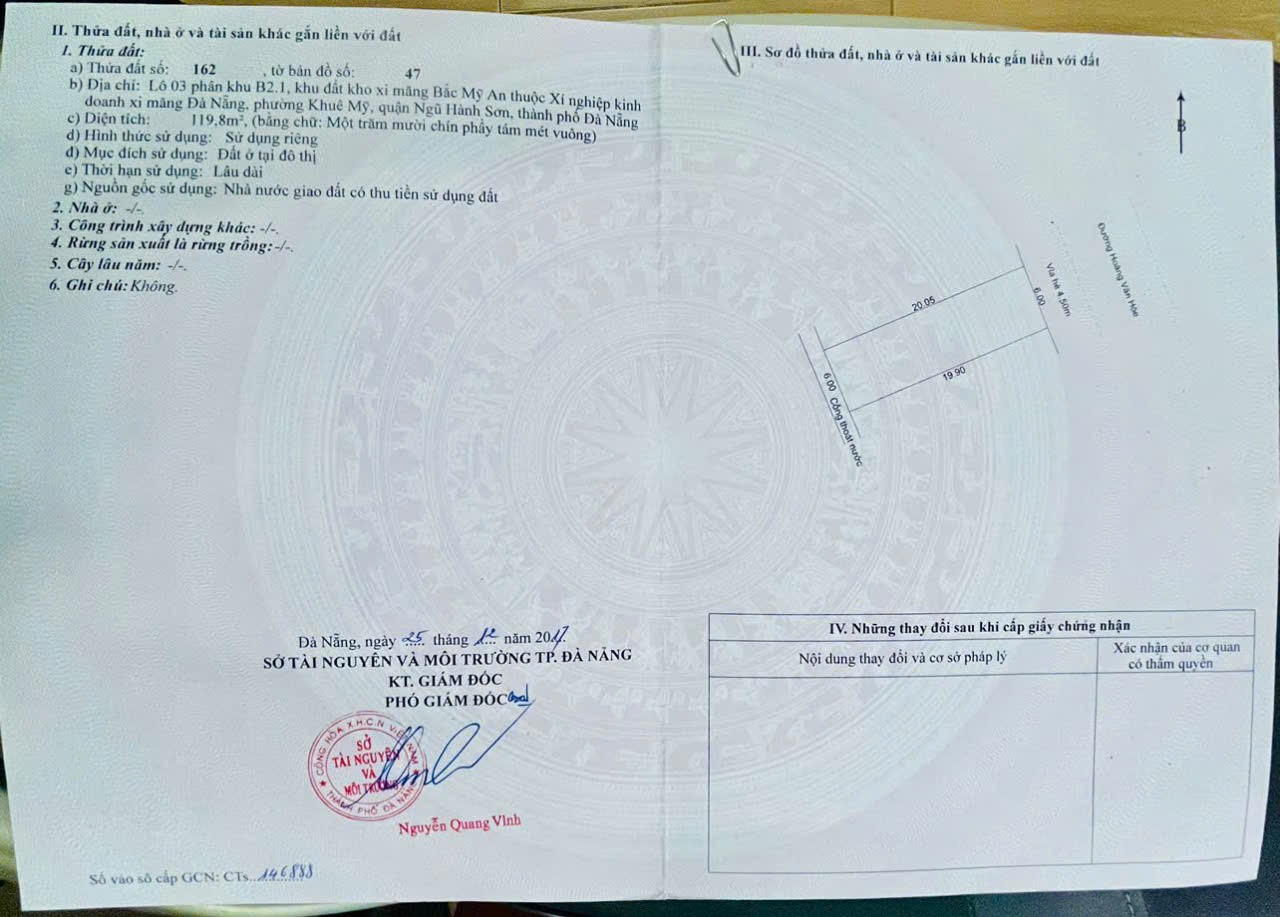 II. Thửa đất, nhà ở và tài sản khác gắn liền với đất
1. Thửa đất:
a) Thửa đất số: 162 , tờ bản đồ số: 47
b) Địa chỉ: Lô 03 phân khu B2.1, khu đất kho xi măng Bắc Mỹ An thuộc Xí nghiệp kinh
doanh xi măng Đà Nẵng, phường Khuê Mỹ, quận Ngũ Hành Sơn, thành phố Đà Nẵng
c) Diện tích: 119,8m², (bằng chữ: Một trăm mười chín phẩy tám mét vuông)
d) Hình thức sử dụng: Sử dụng riêng
đ) Mục đích sử dụng: Đất ở tại đô thị
e) Thời hạn sử dụng: Lâu dài
g) Nguồn gốc sử dụng: Nhà nước giao đất có thu tiền sử dụng đất
2. Nhà ở: -/-.
3. Công trình xây dựng khác: -/-.
4. Rừng sản xuất là rừng trồng: -/-.
5. Cây lâu năm: -/-.
6. Ghi chú: Không.
Đà Nẵng, ngày 25 tháng 12 năm 2017
SỞ TÀI NGUYÊN VÀ MÔI TRƯỜNG TP. ĐÀ NẴNG
KT. GIÁM ĐỐC
PHÓ GIÁM ĐỐC
CỘNG HÒA X.H.C.N VIỆT NAM
SỞ
TÀI NGUYÊN
VÀ
MÔI TRƯỜNG
THÀNH PHỐ ĐÀ NẴNG
Nguyễn Quang Vinh
Số vào sổ cấp GCN: CTs..146888
III. Sơ đồ thửa đất, nhà ở và tài sản khác gắn liền với đất
B
Đường Hoàng Văn Hòe
Vỉa hè 4.50m
6.00
20.05
19.90
6.00 Cống thoát nước
IV. Những thay đổi sau khi cấp giấy chứng nhận
Nội dung thay đổi và cơ sở pháp lý
Xác nhận của cơ quan
có thẩm quyền